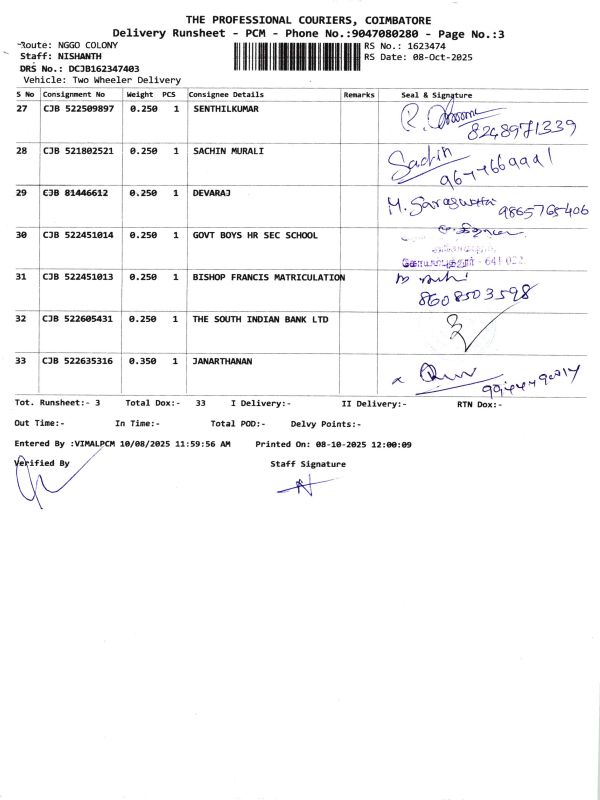 THE PROFESSIONAL COURIERS, COIMBATORE
Delivery Runsheet - PCM - Phone No.:9047080280 - Page No.:3
Route: NGGO COLONY
RS No.: 1623474
Staff: NISHANTH
RS Date: 08-Oct-2025
DRS No.: DCJB162347403
Vehicle: Two Wheeler Delivery
S No Consignment No Weight PCS Consignee Details Remarks Seal & Signature
27 CJB 522509897 0.250 1 SENTHILKUMAR
8248971339
28 CJB 521802521 0.250 1 SACHIN MURALI Sachin
29 CJB 81446612 0.250 1 DEVARAJ M. Saraswathi 9865765406
30 CJB 522451014 0.250 1 GOVT BOYS HR SEC SCHOOL
கோயம்புத்தூர் - 641 022.
31 CJB 522451013 0.250 1 BISHOP FRANCIS MATRICULATION
8608503598
32 CJB 522605431 0.250 1 THE SOUTH INDIAN BANK LTD
33 CJB 522635316 0.350 1 JANARTHANAN
Tot. Runsheet:- 3 Total Dox:- 33 I Delivery:- II Delivery:- RTN Dox:-
Out Time:- In Time:- Total POD:- Delvy Points:-
Entered By :VIMALPCM 10/08/2025 11:59:56 AM Printed On: 08-10-2025 12:00:09
Verified By Staff Signature